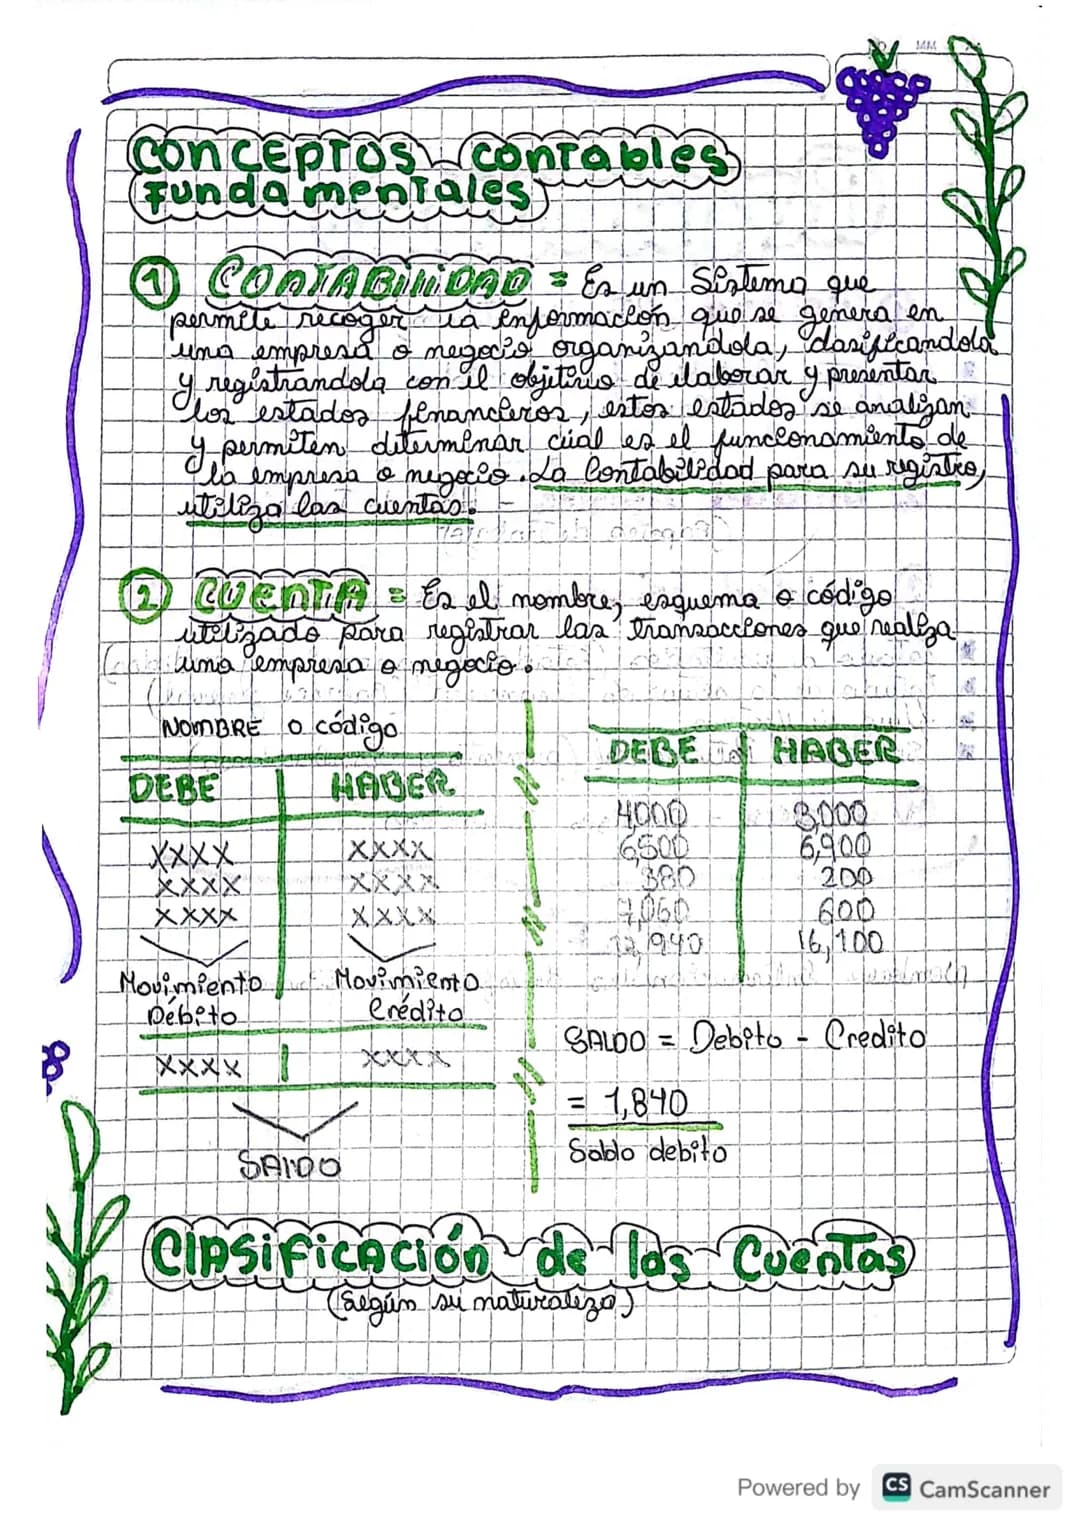 MM
Conceptos contables
fundamentales
1 Contabilidad = Es un Sistema que
permite recoger la información que se genera en
una empresa o negocio, organizandola, clasificandola
y registrandola con el objetivo de elaborar y presentar
los estados financieros, estos estados se analizan
y permiten determinar cúal es el funcionamiento de
la empresa o negocio. La Contabilidad para su registro,
utiliza las cuentas.
2 Cuenta = Es el nombre, esquema o código
utilizado para registrar las transacciones que realiza
una empresa o negocio.
NOMBRE o código
DEBE HABER
XXXX XXXX
XXXX XXXX
XXXX XXXX
Movimiento Movimiento
Débito Crédito
XXXX XXXX
SALDO
DEBE HABER
4000
6500 6,900
380 200
7,060 600
16,100
SALDO = Debito - Credito
= 1,840
Saldo debito
Clasificación de las Cuentas
(según su naturaleza)
Powered by CS CamScanner